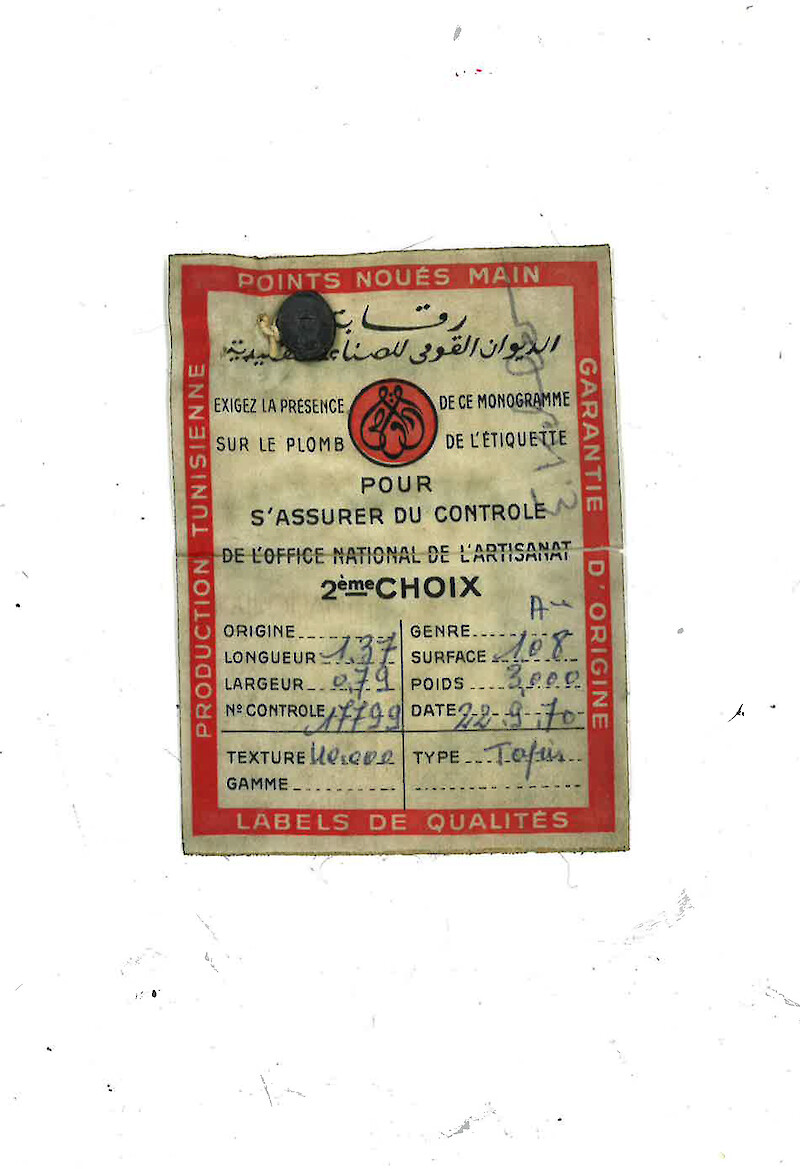 POINTS NOUÉS MAIN
PRODUCTION TUNISIENNE
GARANTIE D'ORIGINE
رقابة
الديوان القومي للصناعات التقليدية
EXIGEZ LA PRÉSENCE DE CE MONOGRAMME
SUR LE PLOMB DE L'ÉTIQUETTE
POUR
S'ASSURER DU CONTROLE
DE L'OFFICE NATIONAL DE L'ARTISANAT
2ème CHOIX
ORIGINE
GENRE
LONGUEUR 1.37
SURFACE 108
LARGEUR 0,79
POIDS 3,000
Nº CONTROLE 17799
DATE 22.9.70
TEXTURE
TYPE Tapis
GAMME
LABELS DE QUALITÉS